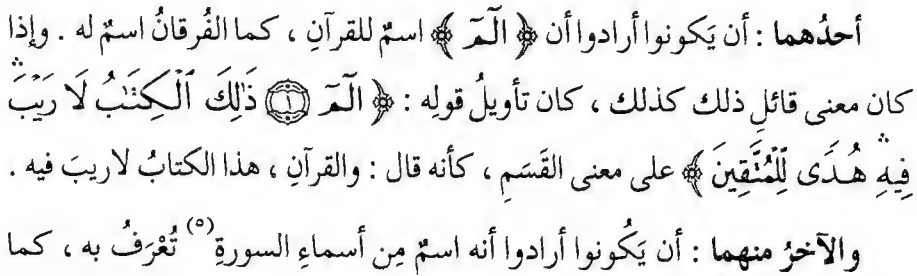 أحدُهما : أن يَكونوا أرادوا أن ﴿ الٓمٓ ﴾ اسمٌ للقرآنِ ، كما الفُرقانُ اسمٌ له . وإذا
كان معنى قائلِ ذلك كذلك ، كان تأويلُ قولِه : ﴿ الٓمٓ ۝١ ذَٰلِكَ ٱلْكِتَٰبُ لَا رَيْبَۛ
فِيهِۛ هُدًى لِّلْمُتَّقِينَ ﴾ على معنى القَسَمِ ، كأنه قال : والقرآنِ ، هذا الكتابُ لا ريبَ فيه .
والآخرُ منهما : أن يَكُونوا أرادوا أنه اسمٌ مِن أسماءِ السورةِ(٥) تُعْرَفُ به ، كما